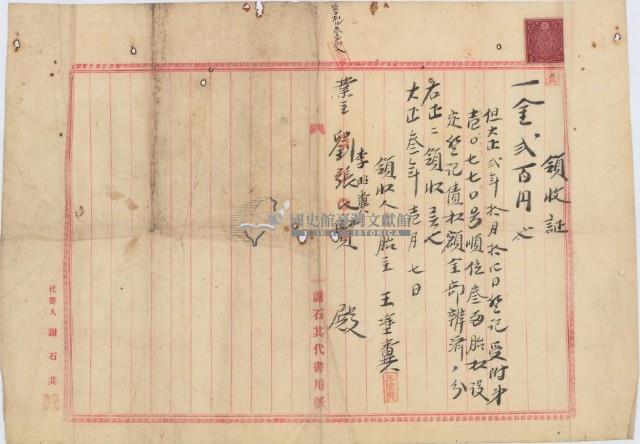 領收証
一金貳百円也
但大正貳年拾月拾四日登記受附第
壱〇七七〇号順位叁番胎权設
定登記債权額全部辨済ノ分
右正ニ領收候也
大正叁年壱月七日
領收人胎主 王塗糞
李昭
業主 劉張氏 殿
謝石其代書用紙
代書人 謝石其
國史館臺灣文獻館